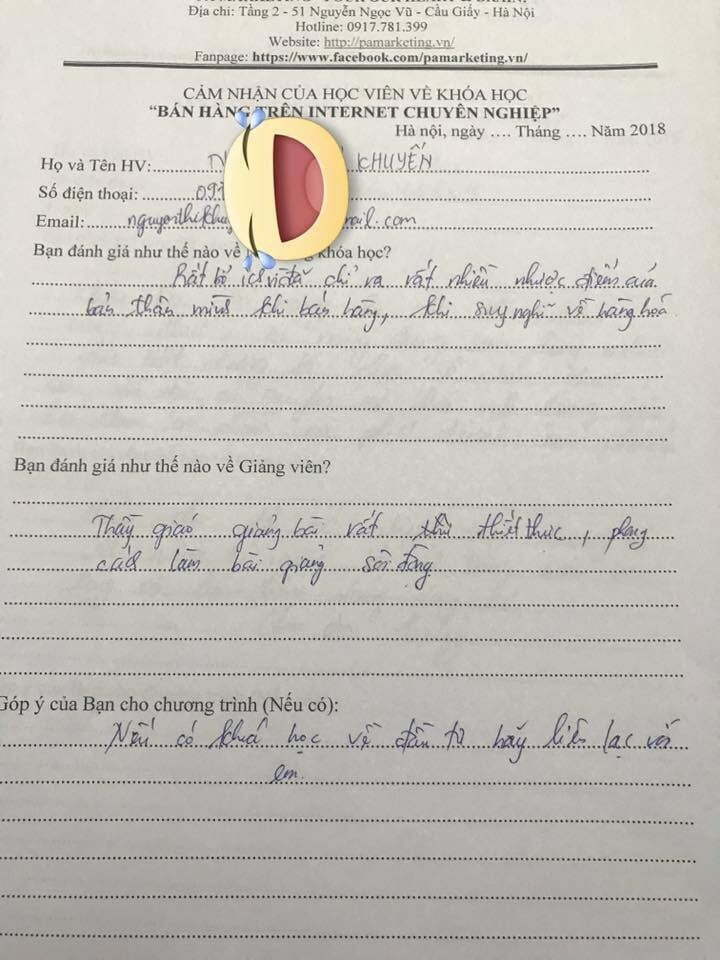 Địa chỉ: Tầng 2 - 51 Nguyễn Ngọc Vũ - Cầu Giấy - Hà Nội
Hotline: 0917.781.399
Website: http://pamarketing.vn/
Fanpage: https://www.facebook.com/pamarketing.vn/
CẢM NHẬN CỦA HỌC VIÊN VỀ KHÓA HỌC
“BÁN HÀNG TRÊN INTERNET CHUYÊN NGHIỆP”
Hà nội, ngày .... Tháng .... Năm 2018
Họ và Tên HV: KHUYẾN
Số điện thoại: 097
Email: nguyenthikhuy mail.com
Bạn đánh giá như thế nào về khóa học?
Rất bổ ích vì đã chỉ ra rất nhiều nhược điểm của
bản thân mình khi bán hàng, khi suy nghĩ về hàng hoá
Bạn đánh giá như thế nào về Giảng viên?
Thầy giáo giảng bài rất thiết thực, phong
cách làm bài giảng sôi động
Góp ý của Bạn cho chương trình (Nếu có):
Nếu có khoá học về đầu tư hãy liên lạc với
em.